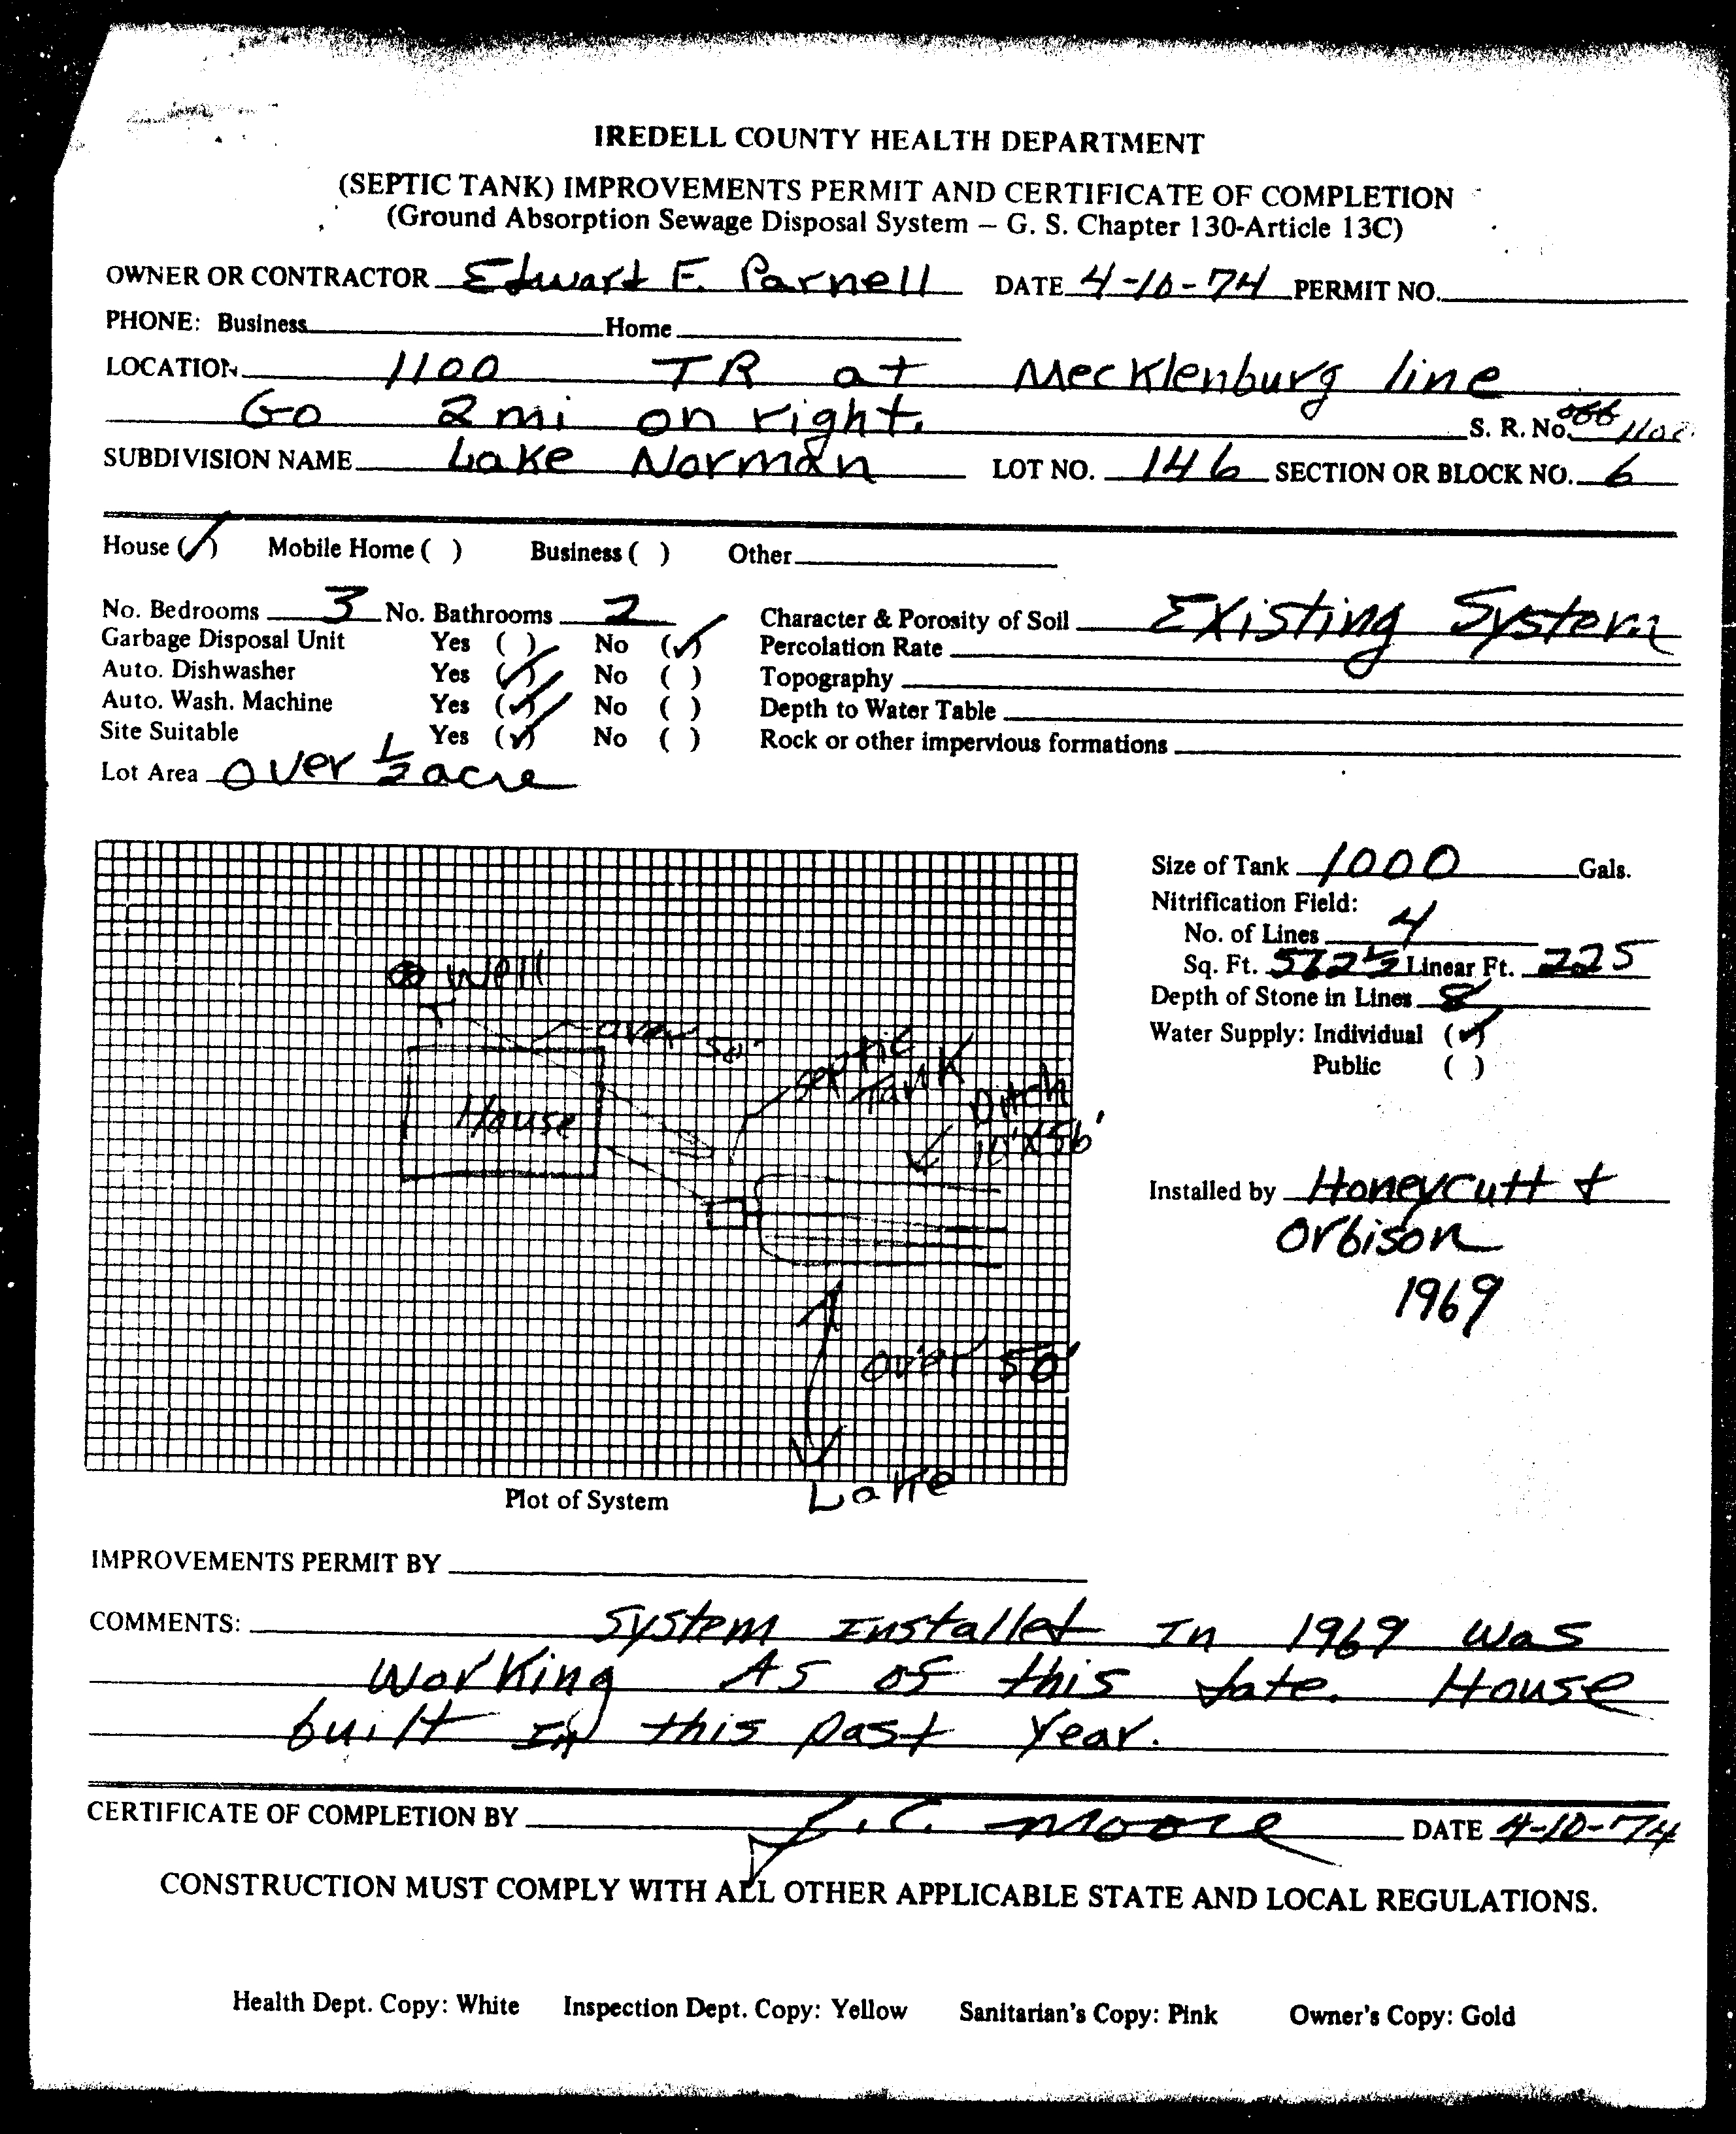 IREDELL COUNTY HEALTH DEPARTMENT
(SEPTIC TANK) IMPROVEMENTS PERMIT AND CERTIFICATE OF COMPLETION
(Ground Absorption Sewage Disposal System – G. S. Chapter 130-Article 13C)
OWNER OR CONTRACTOR Edward F. Parnell DATE 4-10-74 PERMIT NO.
PHONE: Business Home
LOCATION 1100 TR at Mecklenburg line
Go 2 mi on right. S. R. No. 1100
SUBDIVISION NAME Lake Norman LOT NO. 146 SECTION OR BLOCK NO. 6
House (✓) Mobile Home ( ) Business ( ) Other
No. Bedrooms 3 No. Bathrooms 2 Character & Porosity of Soil Existing System
Garbage Disposal Unit Yes ( ) No (✓) Percolation Rate
Auto. Dishwasher Yes (✓) No ( ) Topography
Auto. Wash. Machine Yes (✓) No ( ) Depth to Water Table
Site Suitable Yes (✓) No ( ) Rock or other impervious formations
Lot Area over 1/2 acre
Size of Tank 1000 Gals.
Nitrification Field:
No. of Lines 4
Sq. Ft. 562 1/2 Linear Ft. 225
Depth of Stone in Lines 8
Water Supply: Individual (✓)
Public ( )
Well
over 50'
septic
Tank
House
Ditch
10'x56'
Installed by Honeycutt +
Orbison
1969
over 50'
Lake
Plot of System
IMPROVEMENTS PERMIT BY
COMMENTS: System Installed In 1969 was
Working As of this date. House
built In this past year.
CERTIFICATE OF COMPLETION BY J.C. Moore DATE 4-10-74
CONSTRUCTION MUST COMPLY WITH ALL OTHER APPLICABLE STATE AND LOCAL REGULATIONS.
Health Dept. Copy: White Inspection Dept. Copy: Yellow Sanitarian's Copy: Pink Owner's Copy: Gold